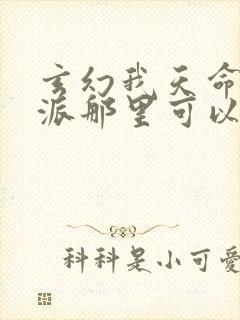 玄幻我天命
派那里可以
科科是小可爱